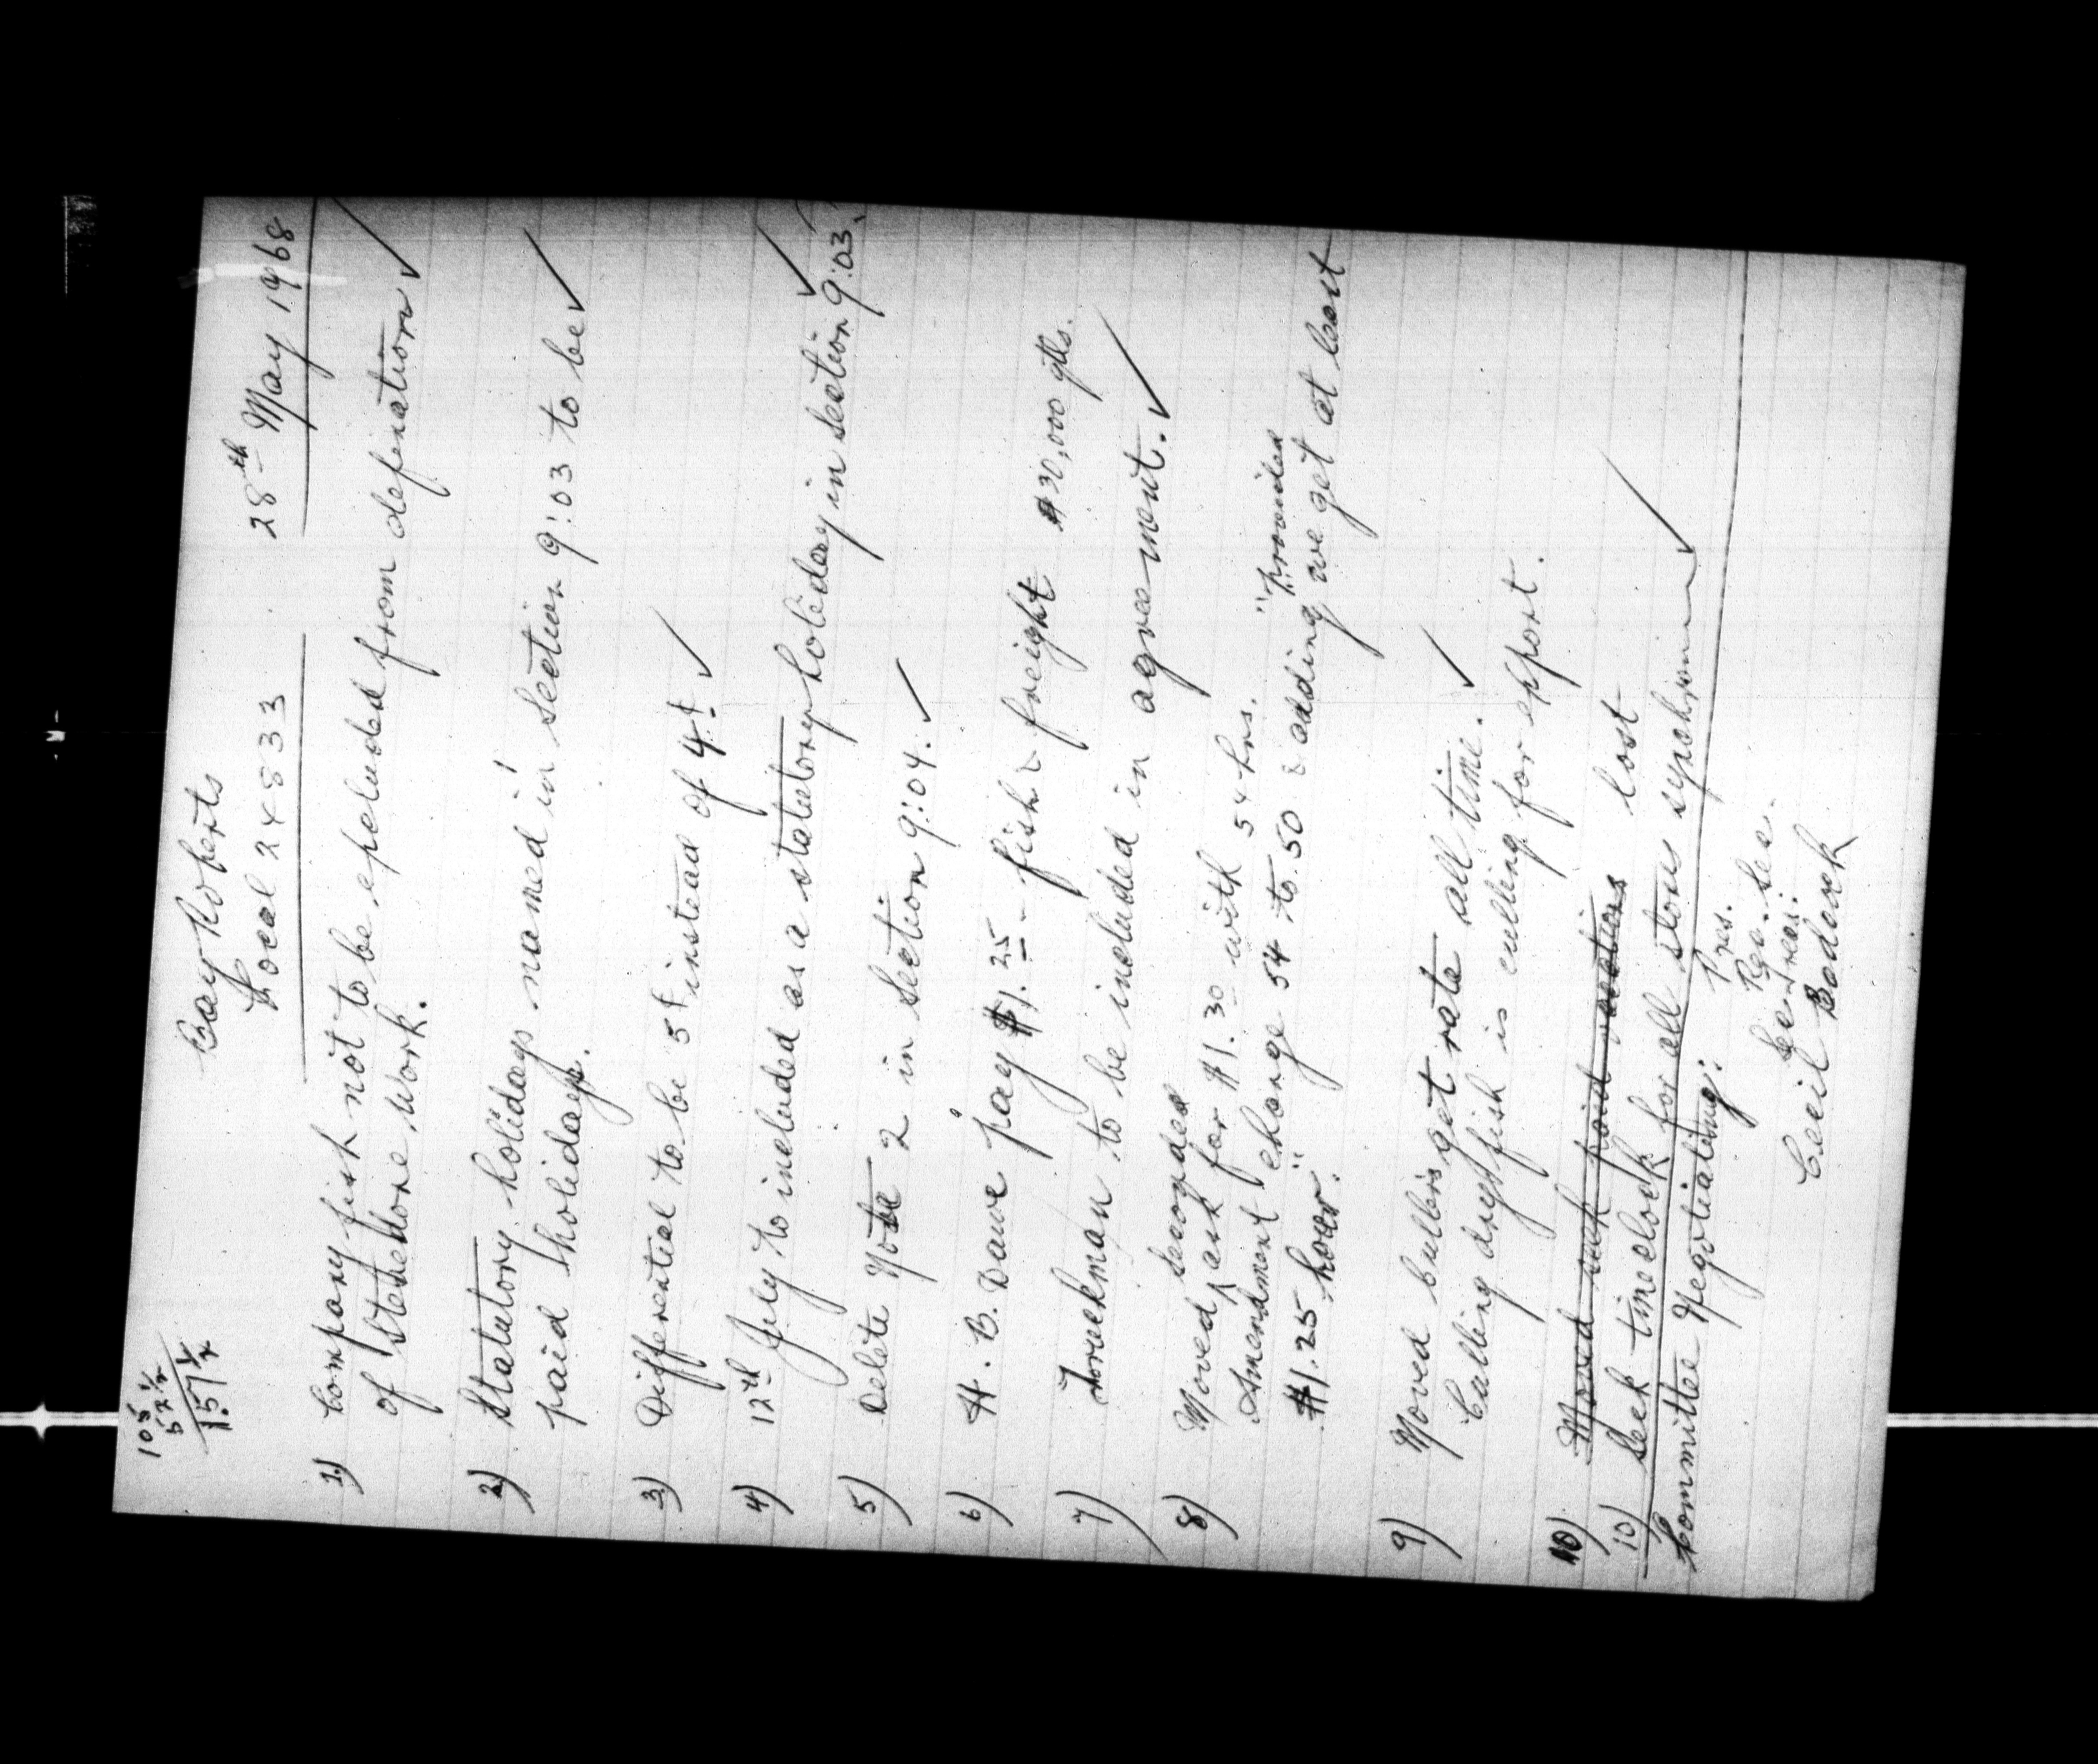 105
52 1/2
157 1/2
Bay Roberts
Local 24833
28th May 1968
1) Company fish not to be excluded from defination ✓
of stenchone work.
2) Statutory holidays named in section 9:03 to be ✓
paid holidays.
3) Differential to be 5¢ instead of 4¢. ✓
4) 12th July to included as a statutory holiday in section 9:03. ✓
5) Delete Note 2 in section 9:04. ✓
6) H. B. Dawe pay $1.25 - fish & freight #30,000 qtls.
7) Truckman to be included in agreement. ✓
8) Moved seconded ask for $1.30 with 54 hrs.
Amendment change 54 to 50 & adding "provided we get at least
$1.25 hour."
9) Moved cullers get rate all time. ✓
Culling dryfish is culling for export.
10) Moved seek paid vacations lost
10) Seek timeclock for all stores ✓
Committee Negotiating: Pres.
Rec. Sec.
Sec Treas:
Cecil Badcock